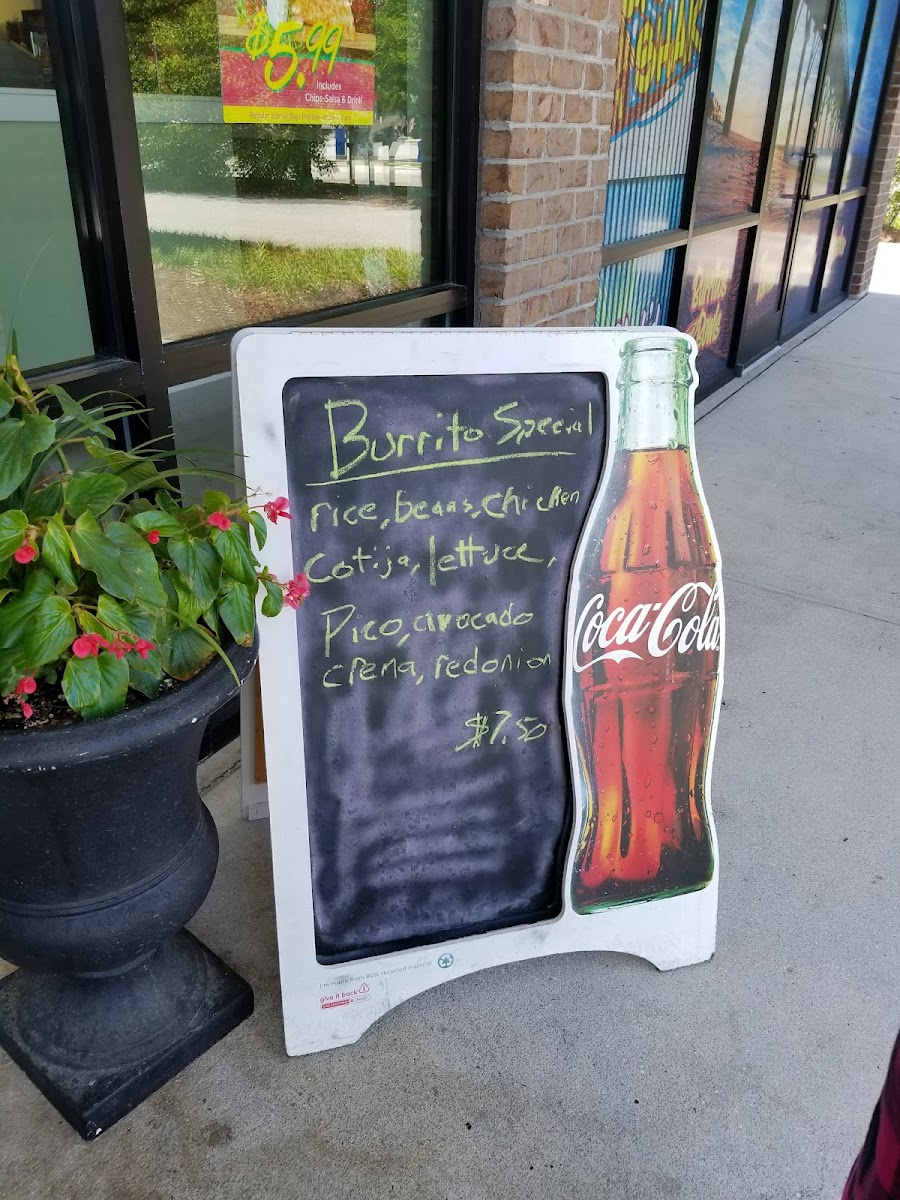 $5.99
Includes
Chips-Salsa & Drink
SHAK
Burrito Special
rice, beaas, chicken
Cotija, lettuce,
Pico, avocado
crema, redonion
$7.50
Coca-Cola
I'm made from 80% recycled material
give it back